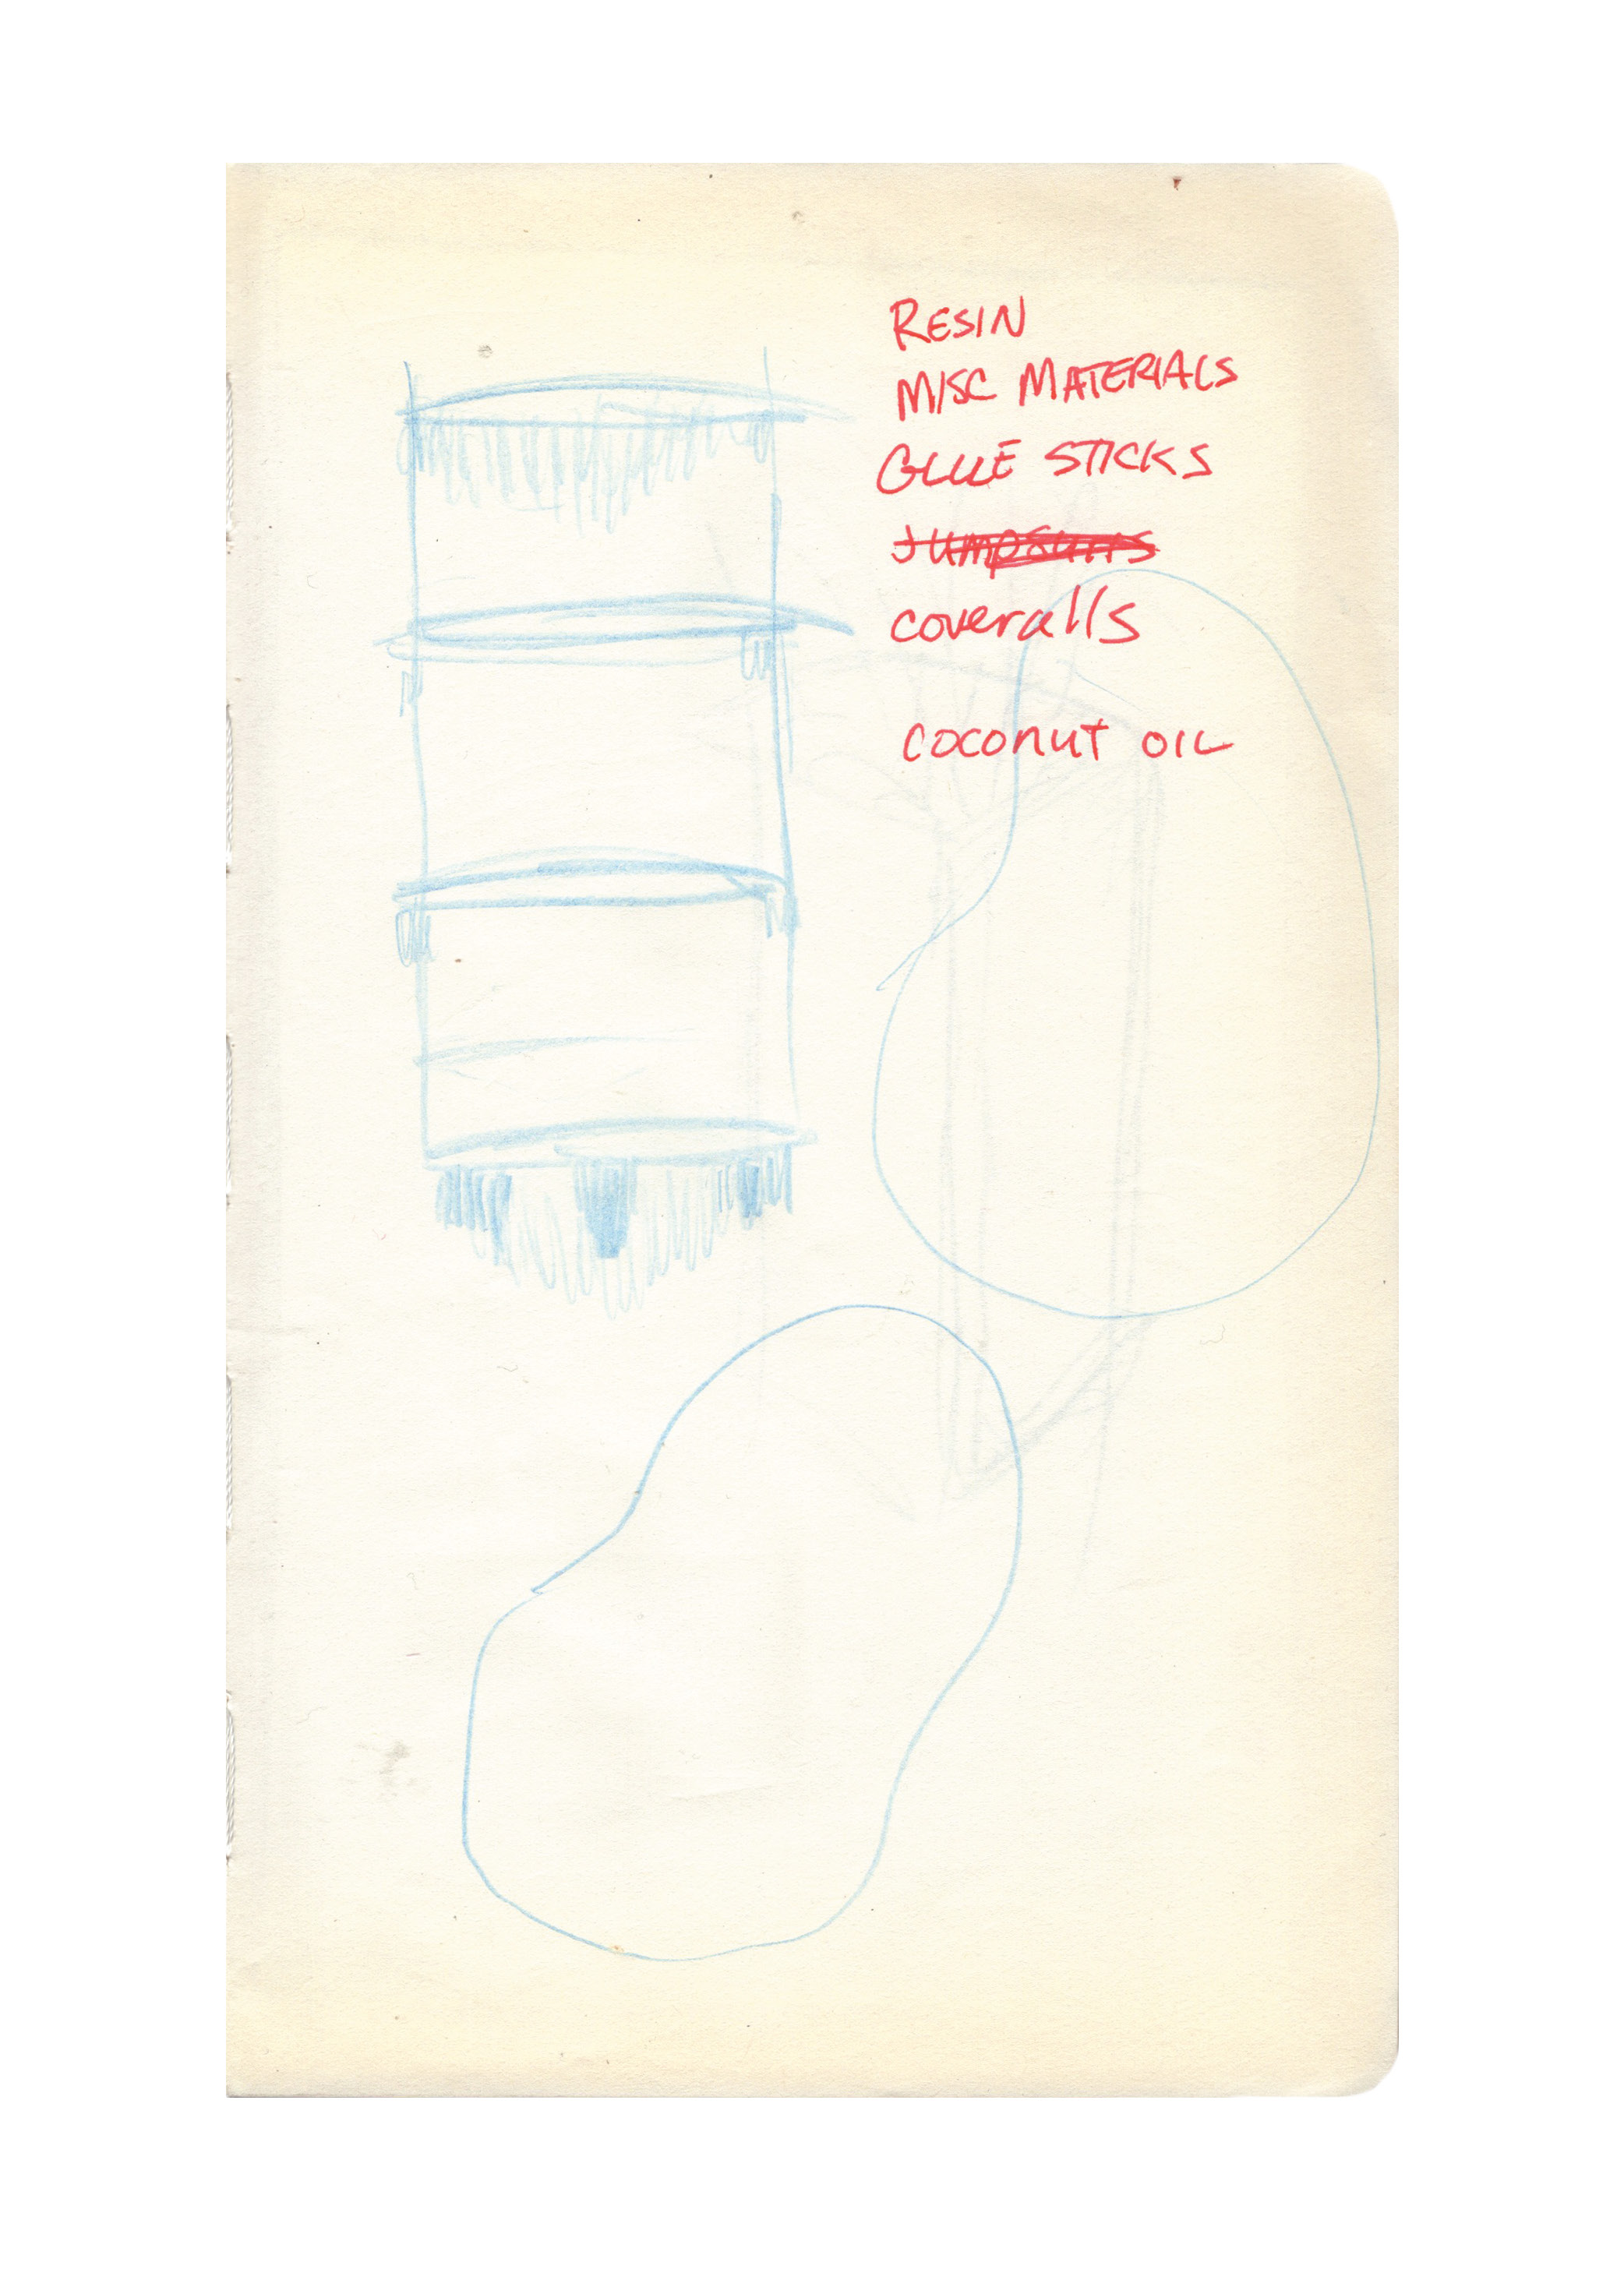 RESIN
MISC MATERIALS
GLUE STICKS
Jumpsuits
coveralls
coconut OIL